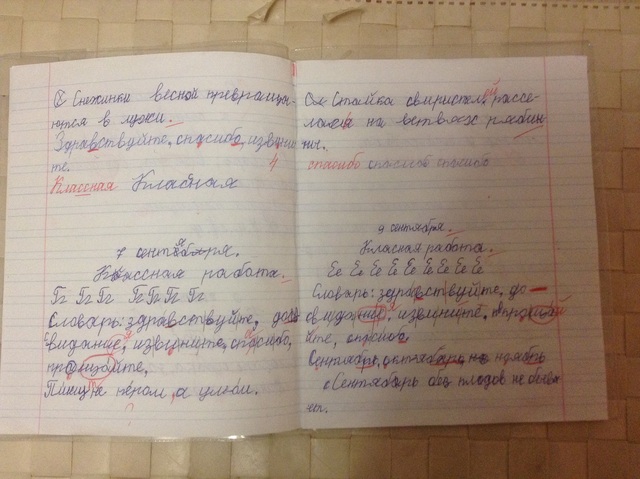 Снежинки весной превраща-
ются в лужи.
Здравствуйте, спасибо, извини
те. 4
Классная Класная
7 сентября.
Классная работа.
Гг Гг Гг Гг Гг Гг Гг
Словарь: здравствуйте, до
видание, извените, спосибо,
Пишут пером, а умом.
Стайка свиристелей рассе-
лась на ветвях рябин
ны.
спасибо спасибо спасибо
9 сентября.
Класная работа.
Ее Ее Ее Ее Ее Ее Ее Ее
Словарь: здравствуйте, до-
свидание, извините,
йте, спосибо
Сентябрь, октябрь, ноябрь
Сентябрь без плодов не быва
ет.